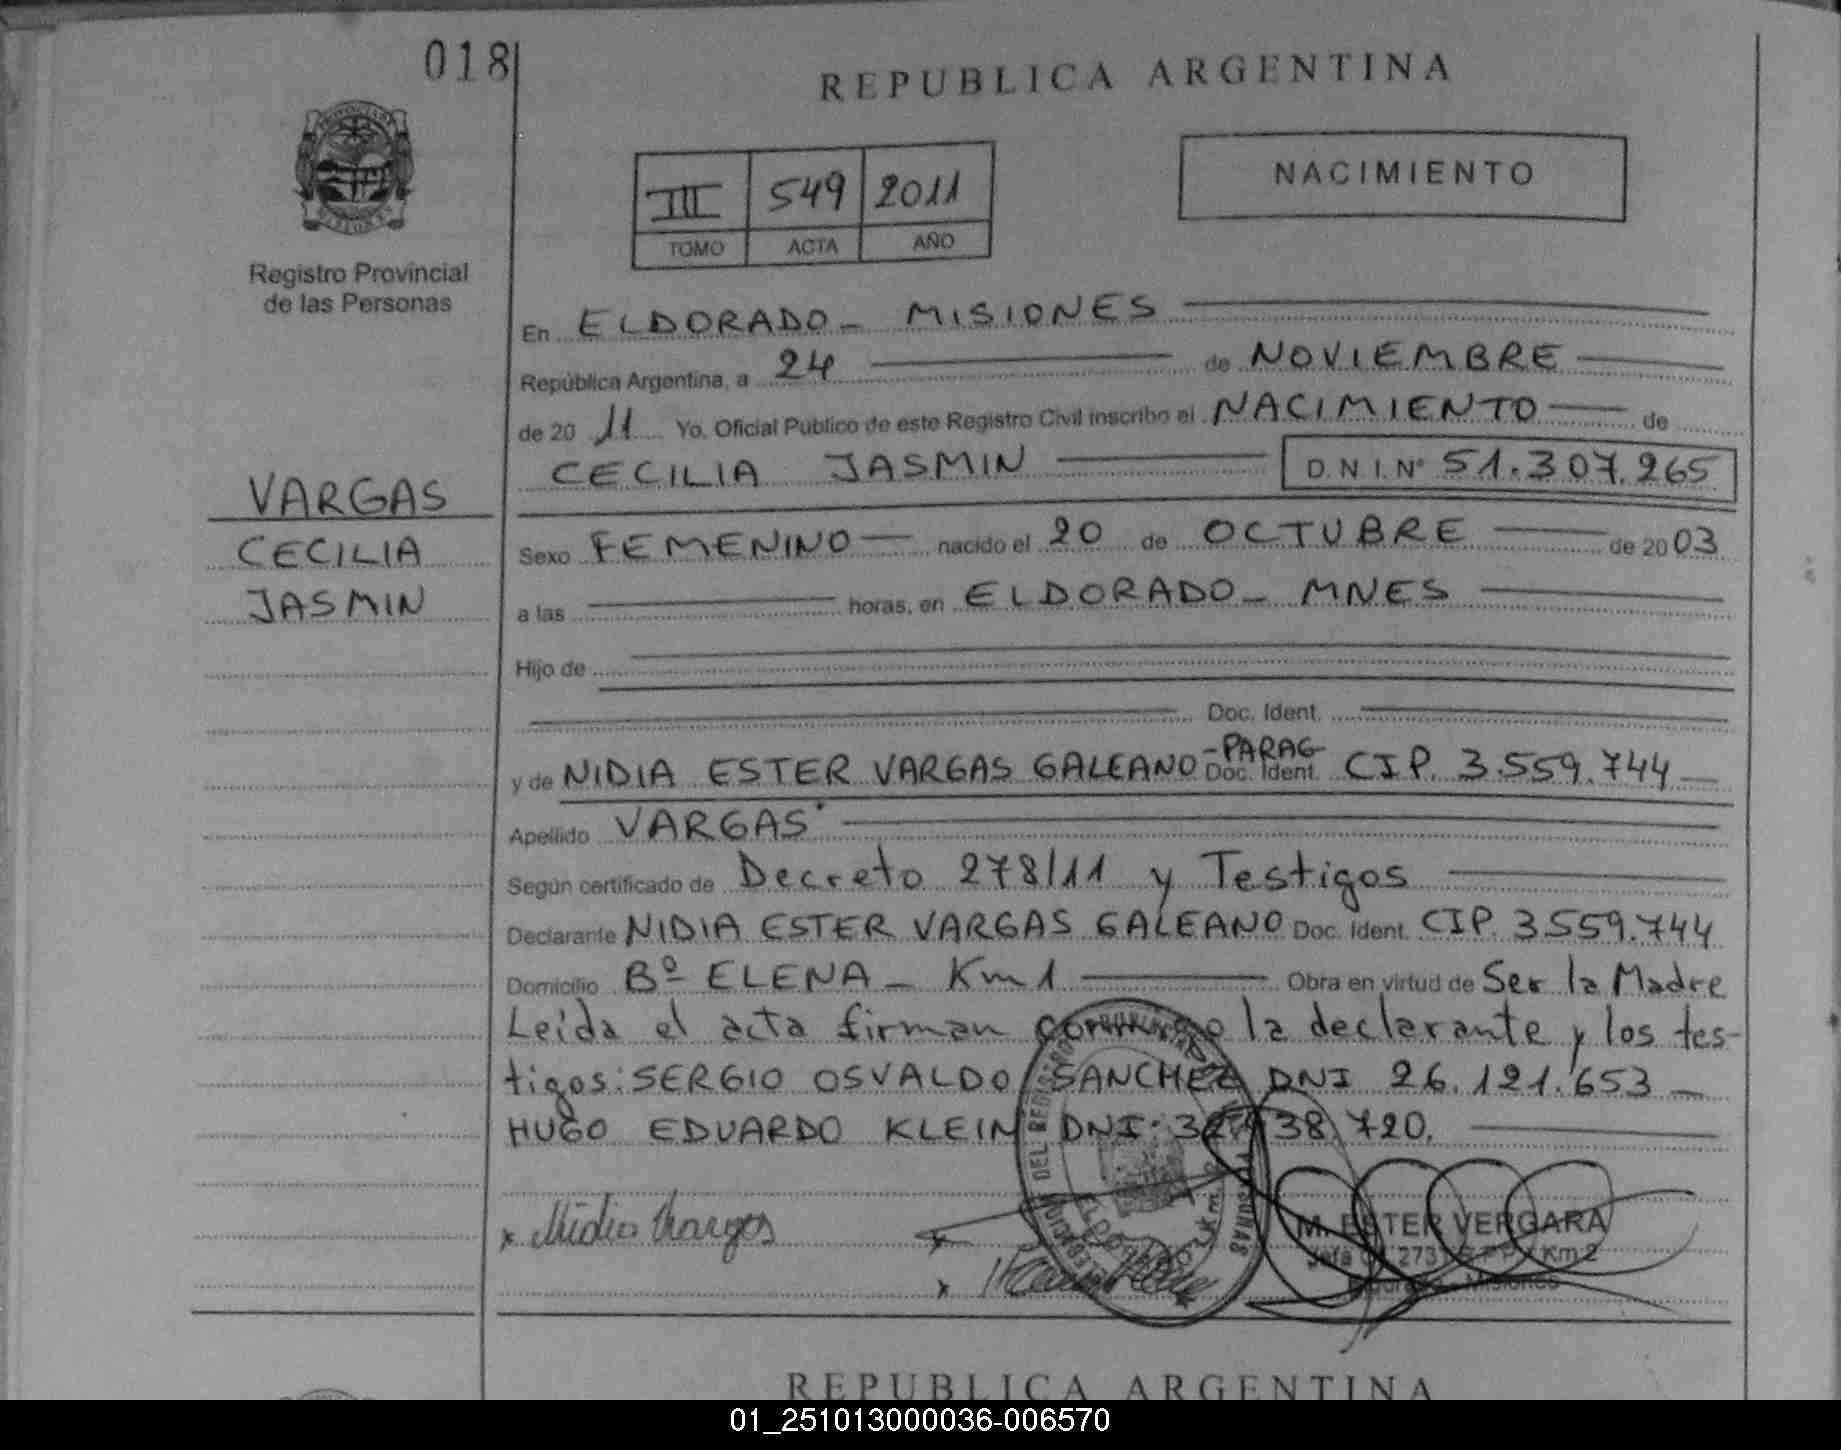 018
REPUBLICA ARGENTINA
NACIMIENTO
III 549 2011
TOMO ACTA AÑO
Registro Provincial
de las Personas
En ELDORADO - MISIONES
República Argentina, a 24 de NOVIEMBRE
de 20 11 Yo, Oficial Público de este Registro Civil inscribo el NACIMIENTO de
CECILIA JASMIN D.N.I.N° 51.307.265
VARGAS
CECILIA
JASMIN
Sexo FEMENINO nacido el 20 de OCTUBRE de 2003
a las horas, en ELDORADO - MNES
Hijo de
Doc. Ident.
y de NIDIA ESTER VARGAS GALEANO - PARAG Doc. Ident. CIP. 3.559.744
Apellido VARGAS
Según certificado de Decreto 278/11 y Testigos
Declarante NIDIA ESTER VARGAS GALEANO Doc. Ident. CIP. 3559.744
Domicilio Bº ELENA - Km 1 Obra en virtud de Ser la Madre
Leída el acta firman la declarante y los tes-
tigos: SERGIO OSVALDO SANCHEZ DNI 26.121.653
HUGO EDUARDO KLEIN DNI: 38.720.
x Nidia Vargas
M. ESTER VERGARA
Km 2
REPUBLICA ARGENTINA
01_251013000036-006570